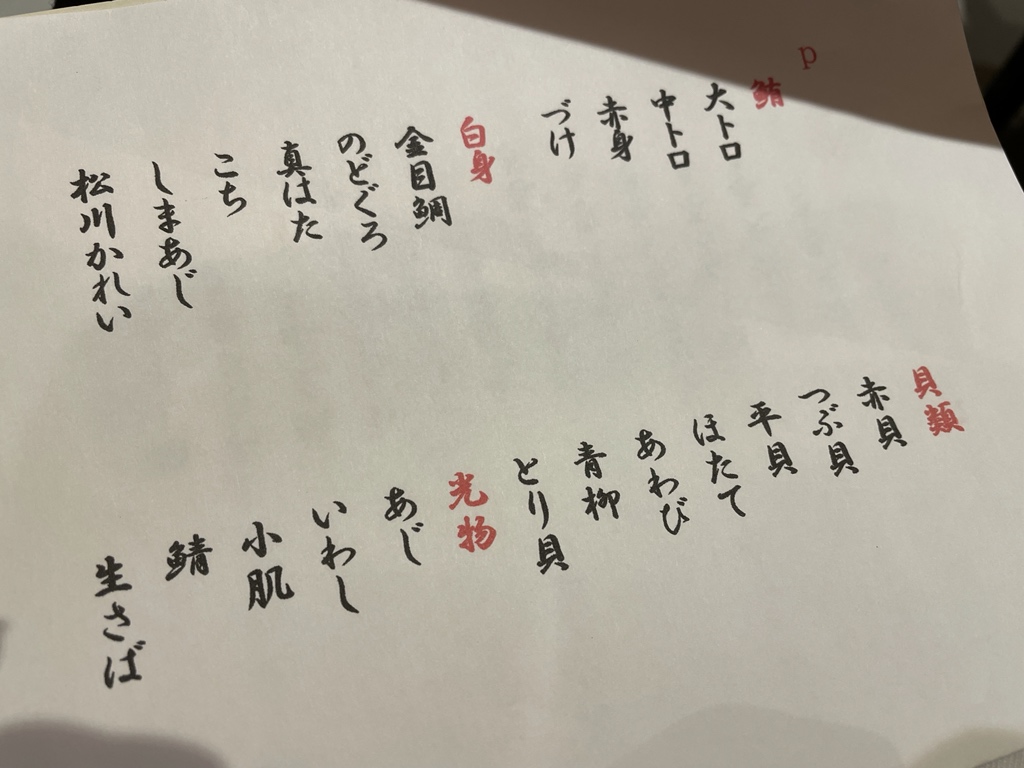 p
鮪
大トロ
中トロ
赤身
づけ
白身
金目鯛
のどぐろ
真はた
こち
しまあじ
松川かれい
貝類
赤貝
つぶ貝
平貝
ほたて
あわび
青柳
とり貝
光物
あじ
いわし
小肌
鯖
生さば